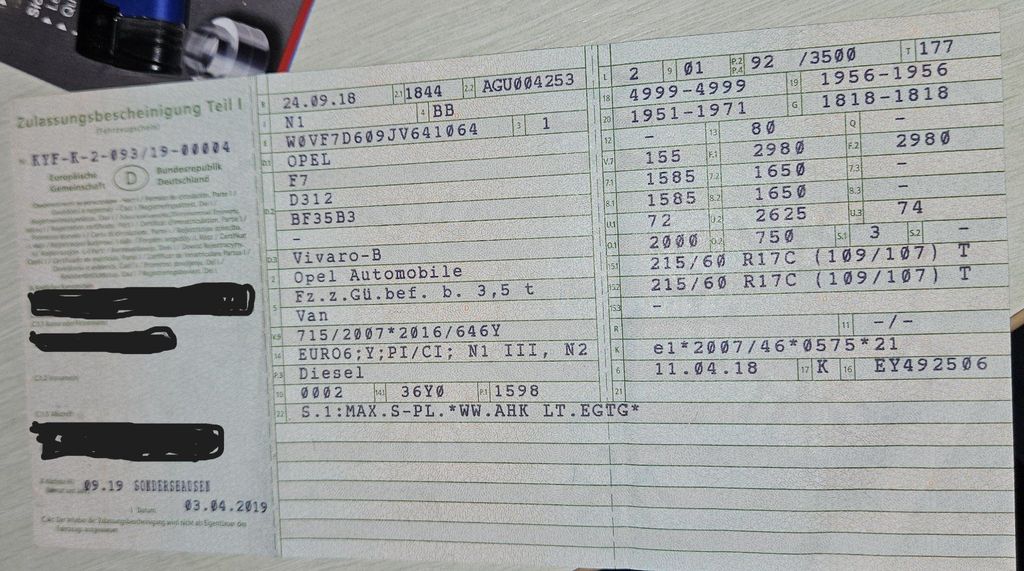 Zulassungsbescheinigung Teil I
(Fahrzeugschein)
KYF-K-2-093/19-00004
Europäische Gemeinschaft
D
Bundesrepublik Deutschland
09.19 SONDERSHAUSEN
Datum 03.04.2019
B 24.09.18 2.1 1844 2.2 AGU004253
J N1 4 BB
E W0VF7D609JV641064 3 1
D.1 OPEL
F7
D.2 D312
BF35B3
-
D.3 Vivaro-B
2 Opel Automobile
5 Fz.z.Gü.bef. b. 3,5 t
Van
V.9 715/2007*2016/646Y
14 EURO6;Y;PI/CI; N1 III, N2
P.3 Diesel
10 0002 14.1 36Y0 P.1 1598
22 S.1:MAX.S-PL.*WW.AHK LT.EGTG*
L 2 9 01 P.2 P.4 92 /3500 T 177
18 4999-4999 19 1956-1956
20 1951-1971 G 1818-1818
12 - 13 80 Q -
V.7 155 F.1 2980 F.2 2980
7.1 1585 7.2 1650 7.3 -
8.1 1585 8.2 1650 8.3 -
U.1 72 U.2 2625 U.3 74
O.1 2000 O.2 750 S.1 3 S.2 -
15.1 215/60 R17C (109/107) T
15.2 215/60 R17C (109/107) T
15.3 -
R 11 -/-
K e1*2007/46*0575*21
6 11.04.18 17 K 16 EY492506
21